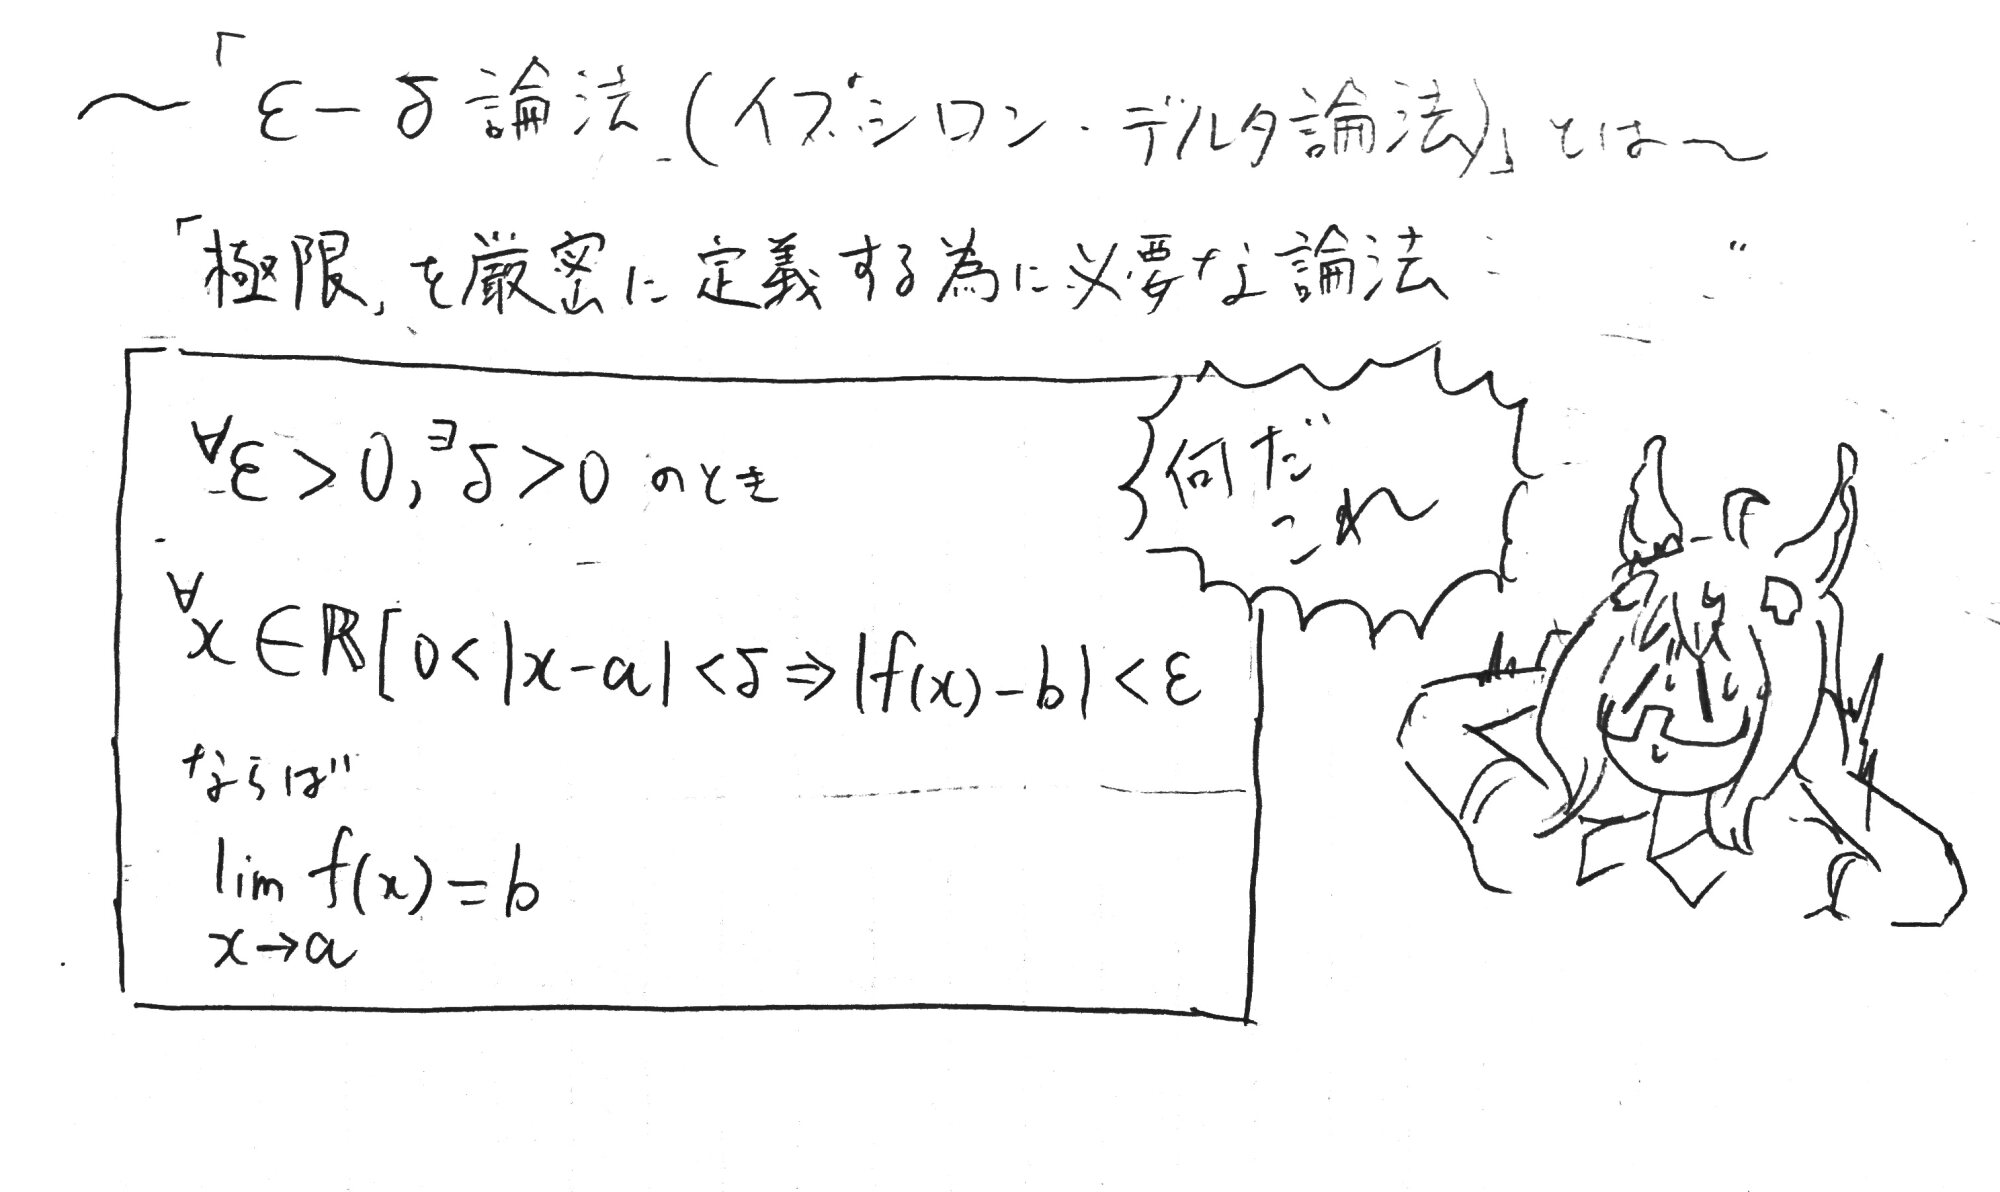 ～「ε-δ論法(イプシロン・デルタ論法)」とは～
「極限」を厳密に定義する為に必要な論法
∀ε>0,∃δ>0のとき
∀x∈ℝ[0<|x-a|<δ⇒|f(x)-b|<ε
ならば
lim f(x)=b
x→a
何だ
これ～